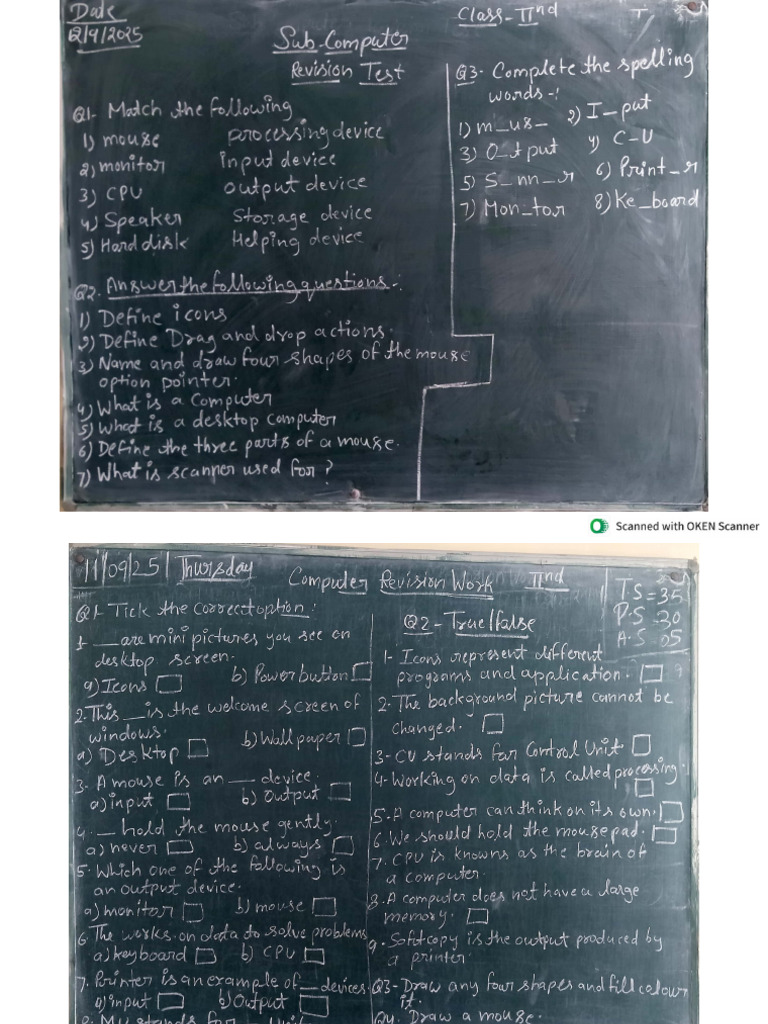 Date
12/9/2025
Class-IInd
Sub-Computer
Revision Test
Q1- Match the following
1) mouse processing device
2) monitor Input device
3) CPU output device
4) Speaker Storage device
5) Hard disk Helping device
Q2. Answer the following questions:
1) Define icons
2) Define Drag and drop actions.
3) Name and draw four shapes of the mouse
option pointer.
4) What is a Computer
5) What is a desktop computer
6) Define the three parts of a mouse.
7) What is scanner used for?
Q3- Complete the spelling
words-:
1) m_us_ 2) I_put
3) O_tput 4) C-U
5) S_nn_r 6) Print_r
7) Mon_tor 8) Ke_board
Scanned with OKEN Scanner
11/09/25 Thursday Computer Revision Work IInd
T.S=35
P.S=30
A.S=05
Q1. Tick the correct option:
1. __ are mini pictures you see on
desktop screen.
a) Icons b) Power button
2. This __ is the welcome screen of
windows.
a) Desktop b) Wall paper
3. A mouse is an __ device.
a) input b) Output
4. __ hold the mouse gently.
a) never b) always
5. Which one of the following is
an output device.
a) monitor b) mouse
6. The works on data to solve problems
a) keyboard b) CPU
7. Printer is an example of __ devices.
a) input b) Output
8. MU stands for __ Unit
Q2-True/false
1- Icons represent different
programs and application.
2- The background picture cannot be
changed.
3- CU stands for Control Unit
4- Working on data is called processing.
5. A computer can think on its own.
6. We should hold the mouse pad.
7. CPU is knowns as the brain of
a computer
8. A computer does not have a large
memory.
9. Soft copy is the output produced by
a printer
Q3- Draw any four shapes and fill colour
it.
Q4. Draw a mouse.